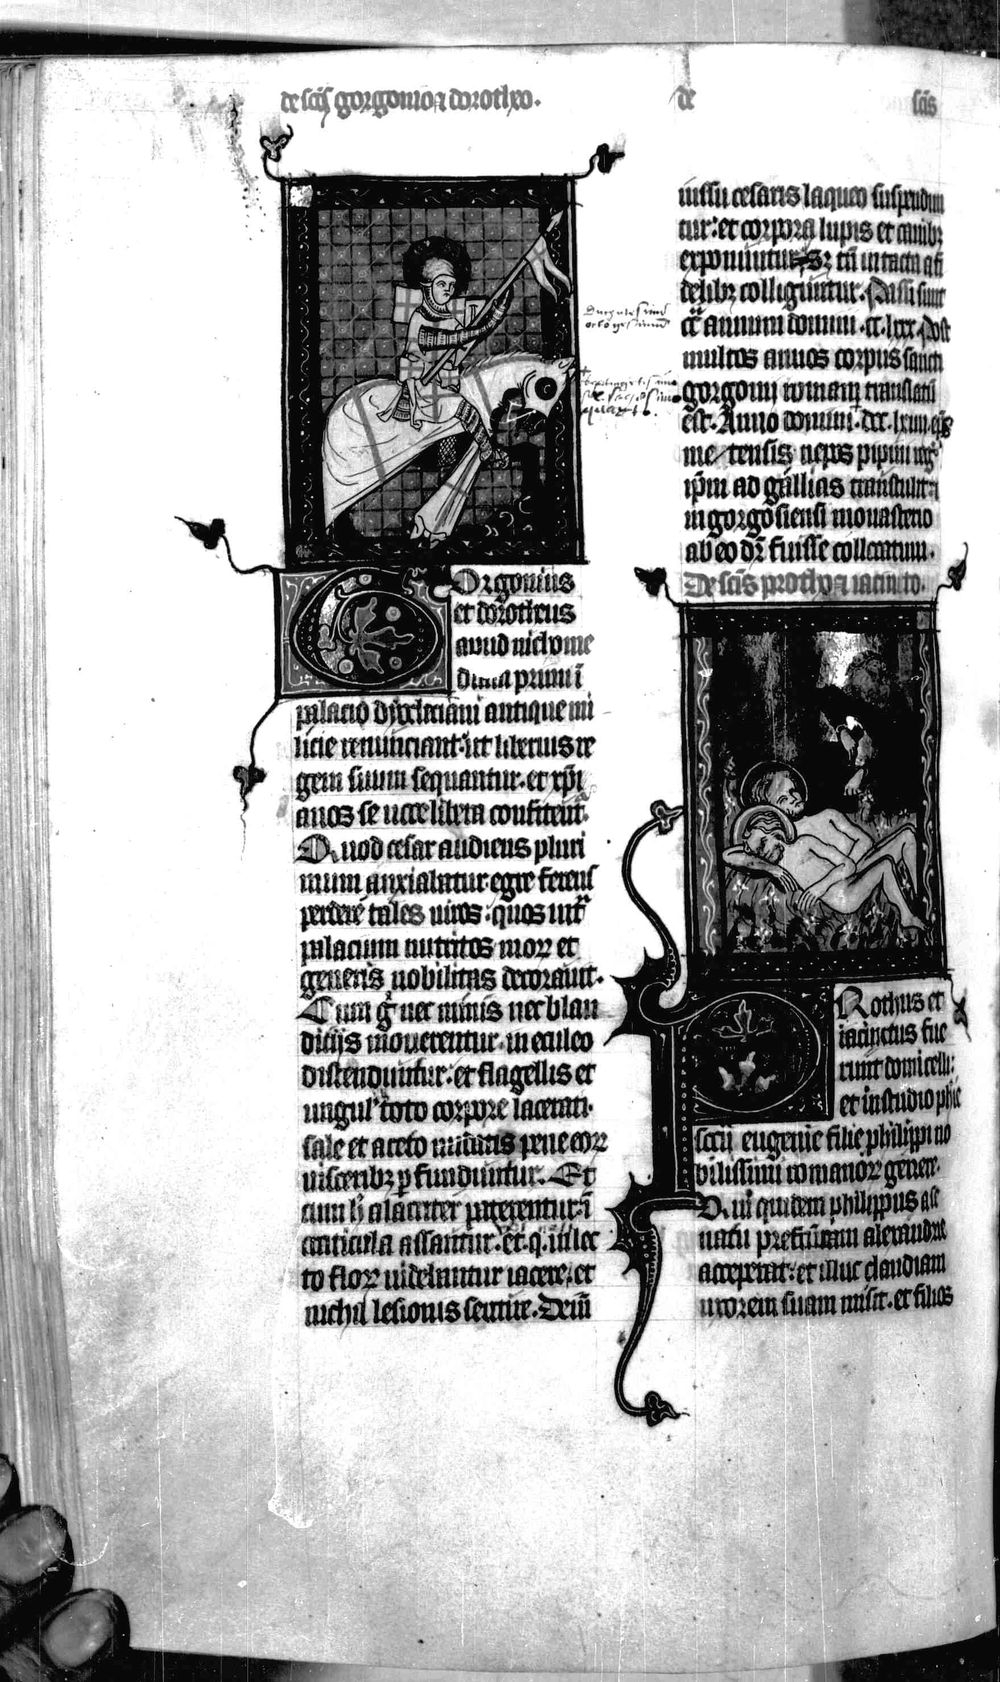 de scīs gorgonio ⁊ dorotheo.
de scīs
Gorgonius
et dorotheus
apud nichome
diam primi ī
palacio dyocleciani antique mi
licie renunciant. ut liberius re
gem suum sequantur. et xp̄i
anos se uoce libera confitent᷑.
Quod cesar audiens pluri
mum anxiabatur egre ferens
perdere tales uiros. quos int᷑
palacium nutritos mor᷑ et
generis nobilitas decorauit.
Cum g° nec minis nec blan
diciis mouerentur. in eculeo
distenduntur. et flagellis et
ungul᷑ toto corpore lacerati.
sale et aceto nudatis pene eor᷑
uisceribꝫ ꝑfunduntur. Et
cum h̄ alacriter paterentur. ī
craticula assantur. et q. in lec
to flor᷑ uidebantur iacere. et
nichil lesionis sentire. Deiū
iussu cesaris laqueo suspendun
tur. et corpora lupis et canibꝫ
exponuntur. Sꝫ tn̄ intacta a fi
delibꝫ colliguntur. Passi sunt
cc̄ annum domini .cc.lxxx. Post
multos annos corpus sancti
gorgonij romam translatū
est. Anno domini .dcc.lxiiii. ep̄s
metensis nepos pipini reg᷑
ip̄m ad gallias transtulit ⁊
in gorgosiensi monasterio
ab eo dr̄ fuisse collocatum.
De scīs protho ⁊ iacincto.
Prothus et
iacinctus fue
runt domicelli.
et in studio phie
socii eugenie filie philippi no
bilissimi romanor᷑ genere.
Qui quidem philippus a se
natu prefecturam alexandrie
acceperat. et illuc claudiam
uxorem suam misit. et filios